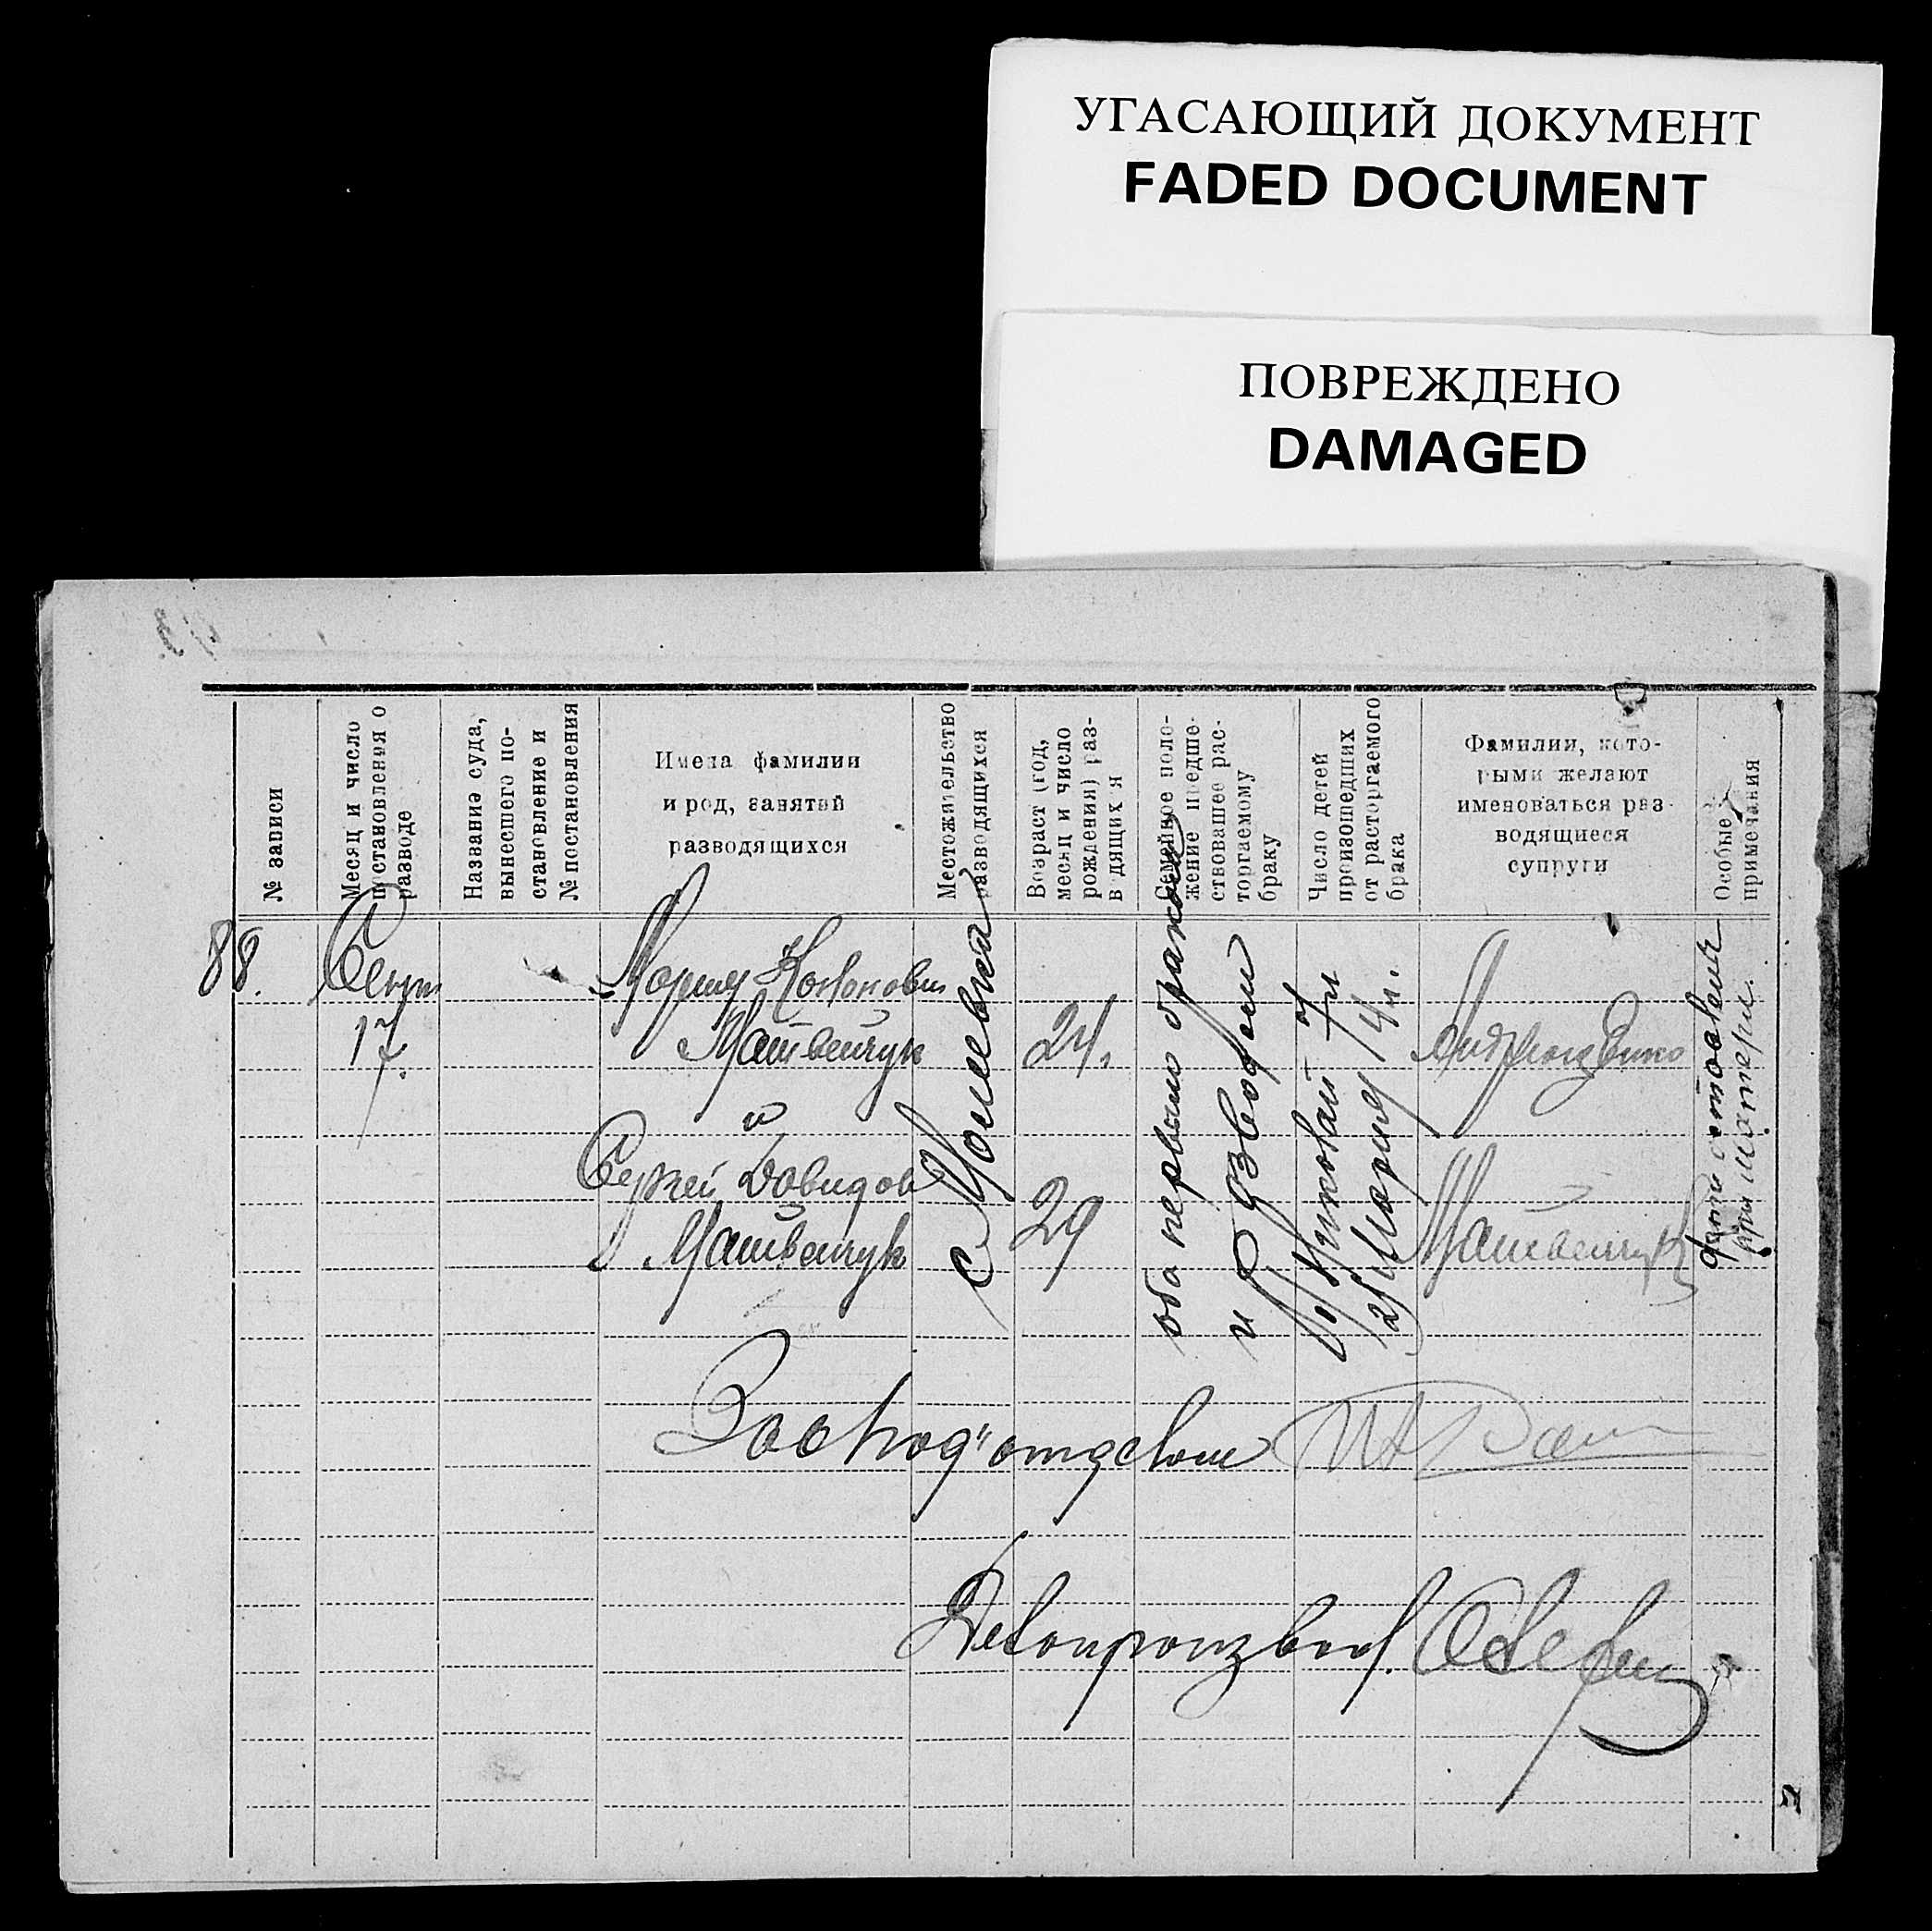 УГАСАЮЩИЙ ДОКУМЕНТ
FADED DOCUMENT
ПОВРЕЖДЕНО
DAMAGED
№ записи
Месяц и число
постановления о
разводе
Название суда,
вынесшего по-
становление и
№ постановления
Имена фамилии
и род, занятий
разводящихся
Местожительство
разводящихся
Возраст (год,
месяц и число
рождения) раз-
в дящих я
Семейное поло-
жение предше-
ствовавшее рас-
торгаемому
браку
Число детей
происшедших
от расторгаемого
брака
Фамилии, кото-
рыми желают
именоваться раз-
водящиеся
супруги
Особые
примечания
88.
Сент
17.
Мария
Матвейчук
и
Сергей Давидов
Матвейчук
с
24.
29
оба первым браком
и разводом
1)
2) Мария 4 л.
Матвейчук
дети оставлены
при матери.
Завпод'отделом
Делопроизвод.